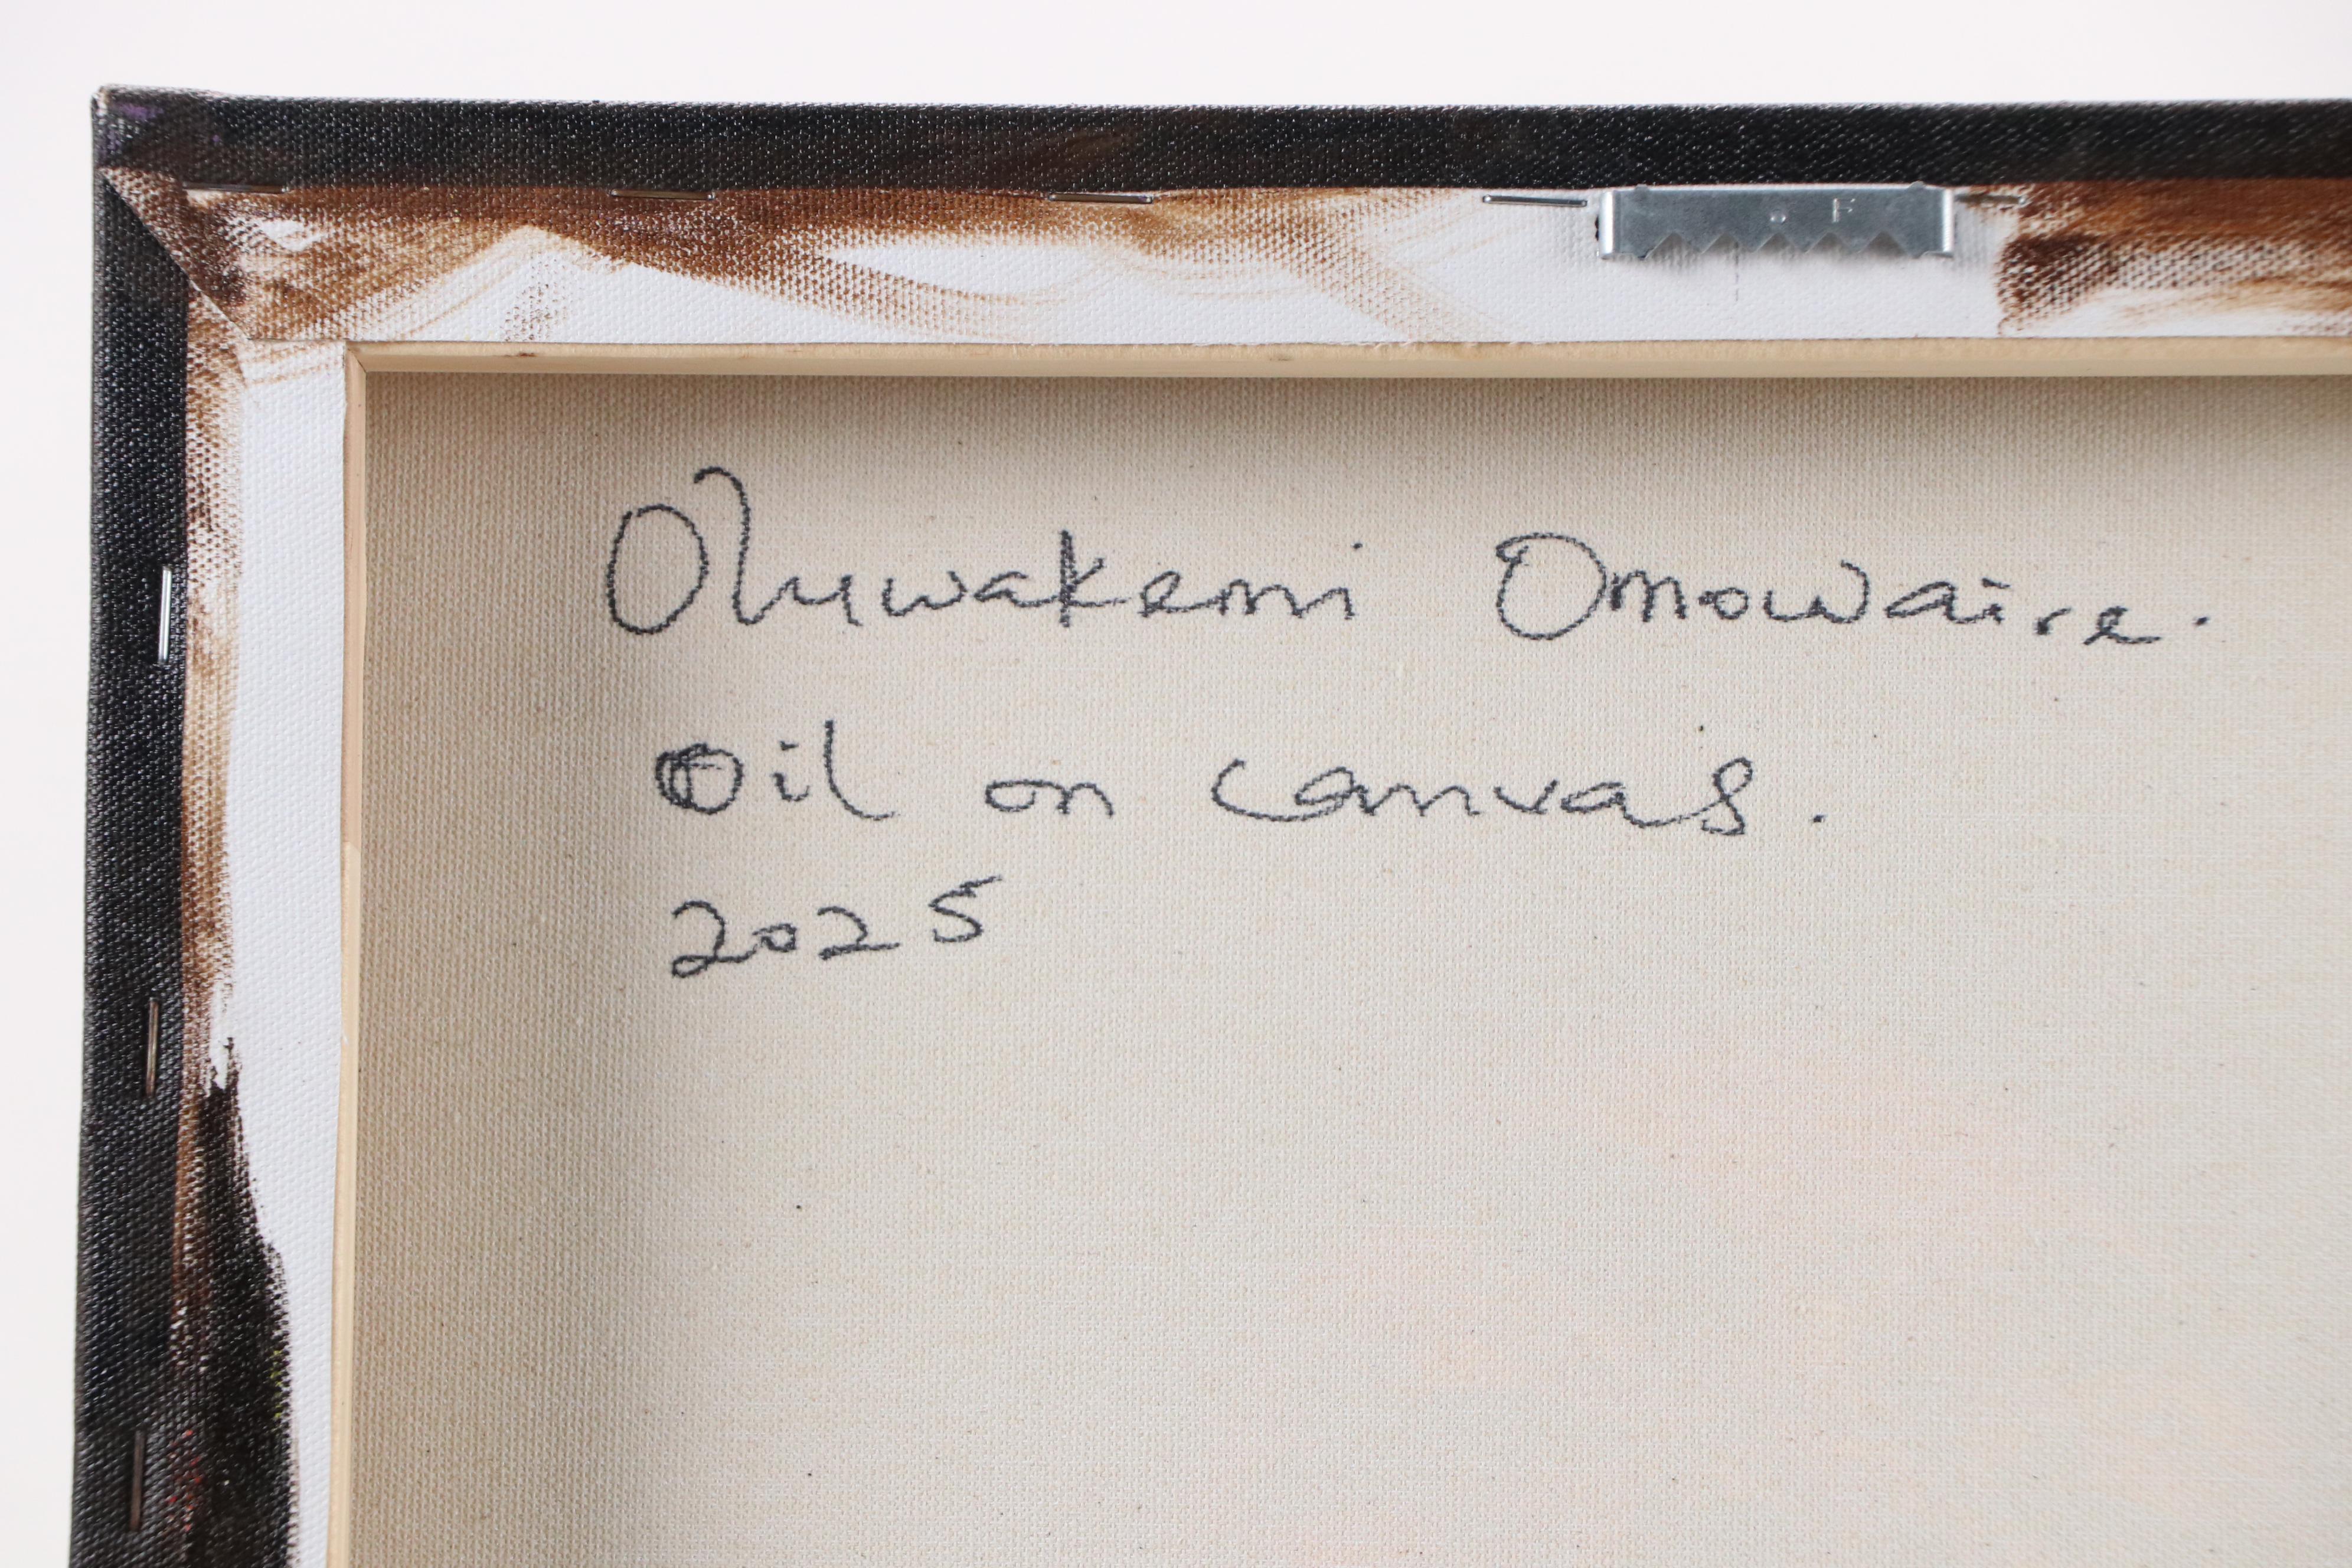 Oluwakemi Omowaire.
Oil on canvas.
2025